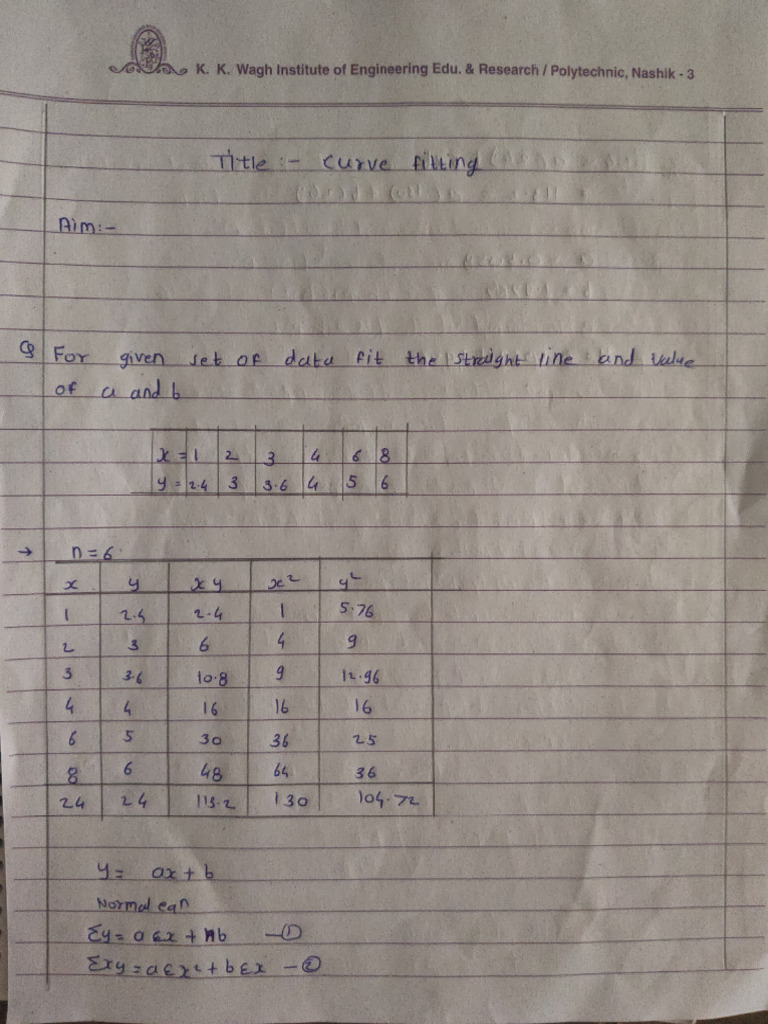 K. K. Wagh Institute of Engineering Edu. & Research / Polytechnic, Nashik - 3
Title :- Curve fitting
Aim:-
Q For given set of data fit the straight line and value
of a and b
x = 1 2 3 4 6 8
y = 2.4 3 3.6 4 5 6
→ n = 6
x y xy x² y²
1 2.4 2.4 1 5.76
2 3 6 4 9
3 3.6 10.8 9 12.96
4 4 16 16 16
6 5 30 36 25
8 6 48 64 36
24 24 113.2 130 104.72
y = ax + b
Normal eqn
Σy = aΣx + nb —①
Σxy = aΣx² + bΣx —②